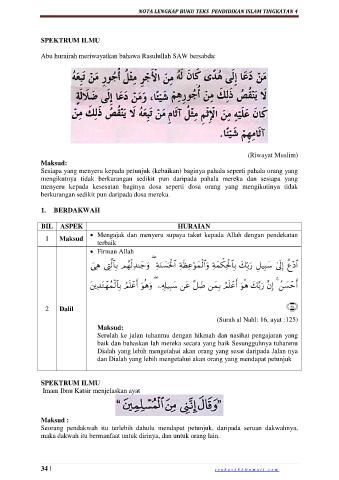 NOTA LENGKAP BUKU TEKS PENDIDIKAN ISLAM TINGKATAN 4
SPEKTRUM ILMU
Abu hurairah meriwayatkan bahawa Rasulullah SAW bersabda:
مَنْ دَعَا إِلَى هُدًى كَانَ لَهُ مِنَ الْأَجْرِ مِثْلُ أُجُورِ مَنْ تَبِعَهُ
لَا يَنْقُصُ ذَلِكَ مِنْ أُجُورِهِمْ شَيْئًا، وَمَنْ دَعَا إِلَى ضَلَالَةٍ
كَانَ عَلَيْهِ مِنَ الْإِثْمِ مِثْلُ آثَامِ مَنْ تَبِعَهُ لَا يَنْقُصُ ذَلِكَ مِنْ
آثَامِهِمْ شَيْئًا.
(Riwayat Muslim)
Maksud:
Sesiapa yang menyeru kepada petunjuk (kebaikan) baginya pahala seperti pahala orang yang
mengikutnya tidak berkurangan sedikit pun daripada pahala mereka dan sesiapa yang
menyeru kepada kesesatan baginya dosa seperti dosa orang yang mengikutinya tidak
berkurangan sedikit pun daripada dosa mereka.
1. BERDAKWAH
BIL ASPEK HURAIAN
1 Maksud • Mengajak dan menyeru supaya takut kepada Allah dengan pendekatan
terbaik
• Firman Allah
ٱدْعُ إِلَىٰ سَبِيلِ رَبِّكَ بِٱلْحِكْمَةِ وَٱلْمَوْعِظَةِ ٱلْحَسَنَةِ ۖ وَجَـٰدِلْهُم بِٱلَّتِى هِىَ
أَحْسَنُ ۚ إِنَّ رَبَّكَ هُوَ أَعْلَمُ بِمَن ضَلَّ عَن سَبِيلِهِۦ ۖ وَهُوَ أَعْلَمُ بِٱلْمُهْتَدِينَ
2 Dalil
(Surah al Nahl: 16, ayat :125)
Maksud:
Serulah ke jalan tuhanmu dengan hikmah dan nasihat pengajaran yang
baik dan bahaskan lah mereka secara yang baik Sesungguhnya tuhanmu
Dialah yang lebih mengetahui akan orang yang sesat daripada Jalan nya
dan Dialah yang lebih mengetahui akan orang yang mendapat petunjuk
SPEKTRUM ILMU
Imam Ibnu Katsir menjelaskan ayat
"وَقَالَ إِنَّنِي مِنَ الْمُسْلِمِينَ"
Maksud :
Seorang pendakwah itu terlebih dahulu mendapat petunjuk, daripada seruan dakwahnya,
maka dakwah itu bermanfaat untuk dirinya, dan untuk orang lain.
34 |